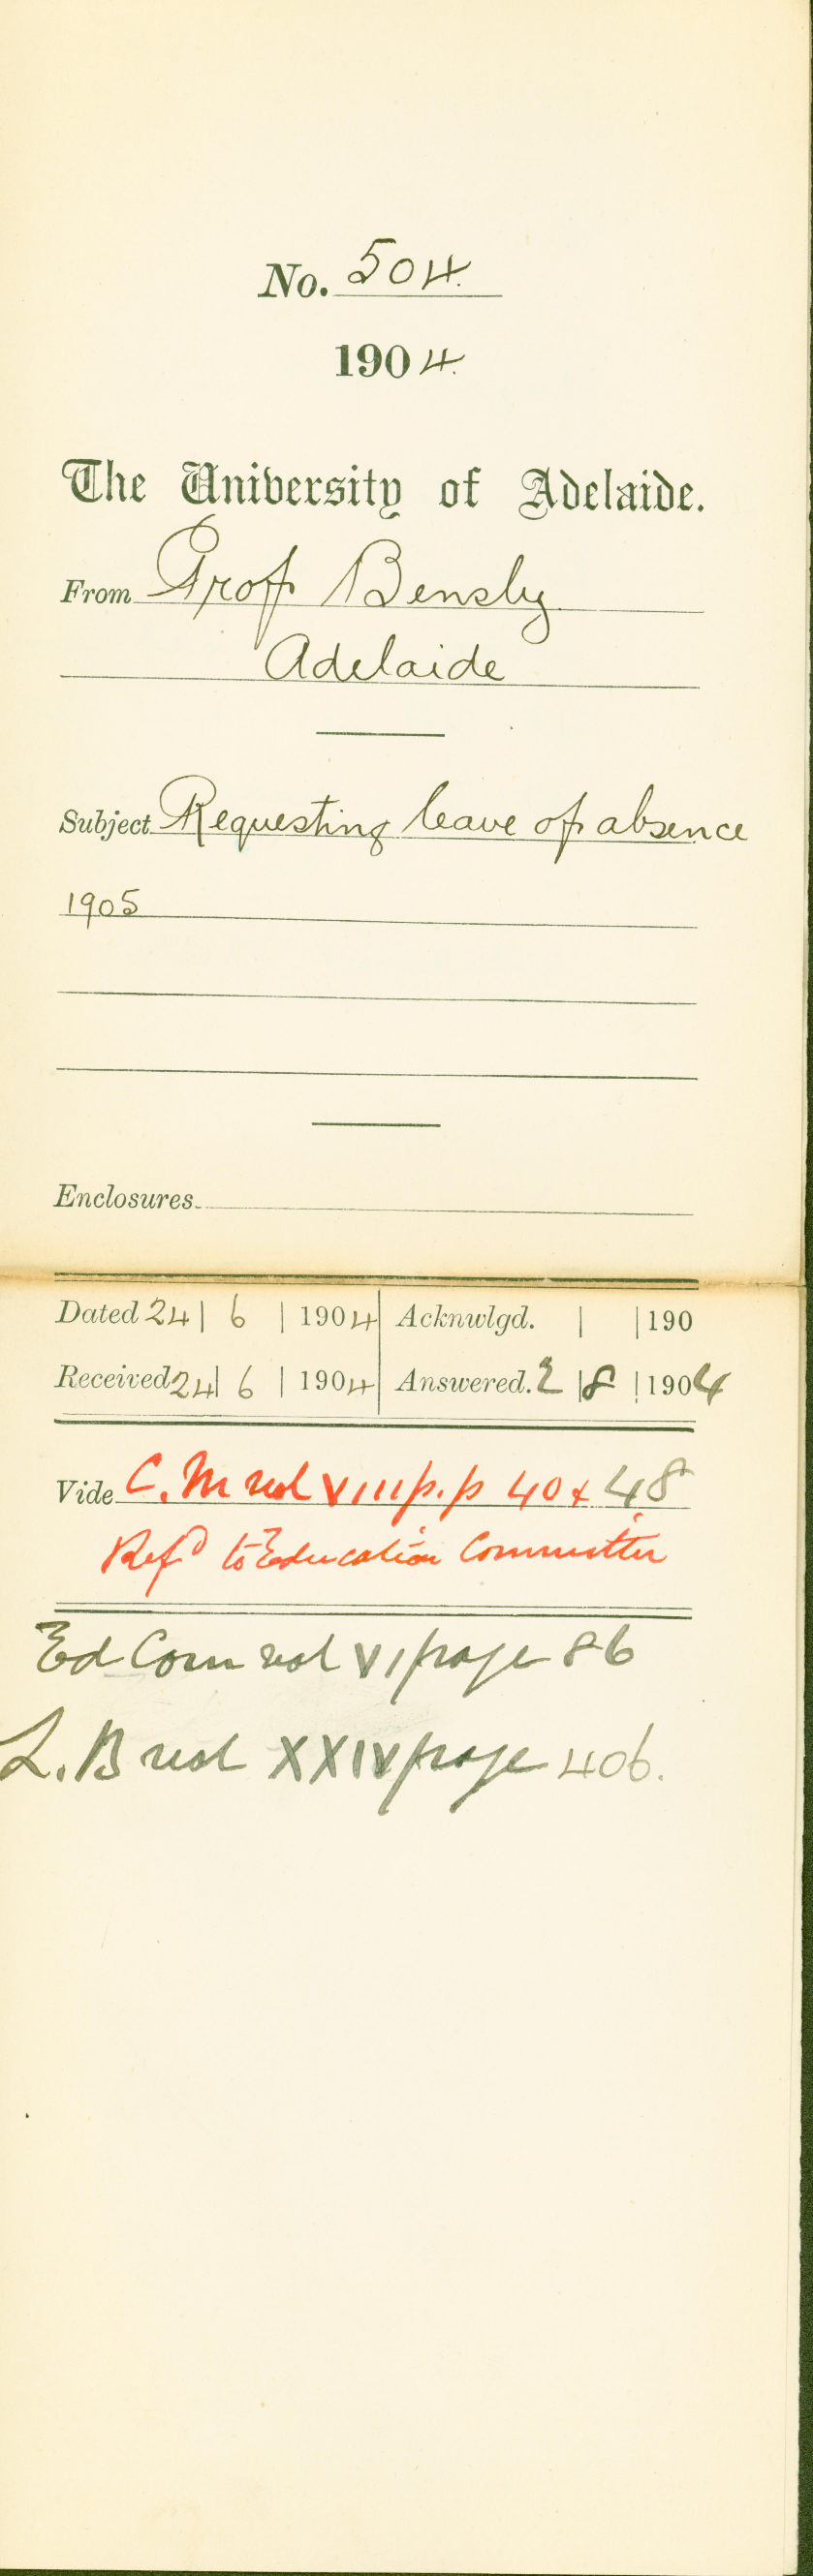 No. 504.
1904.
The University of Adelaide.
From Prof Bensly
Adelaide
Subject Requesting leave of absence
1905
Enclosures
Dated 24 | 6 | 1904 Acknwlgd. | | 190
Received 24 | 6 | 1904 Answered. 2 | 8 | 1904
Vide C. M vol VIII p.p 40 + 48
Refd to Education Committee
Ed Com vol VI page 86
L. B vol XXIV page 406.